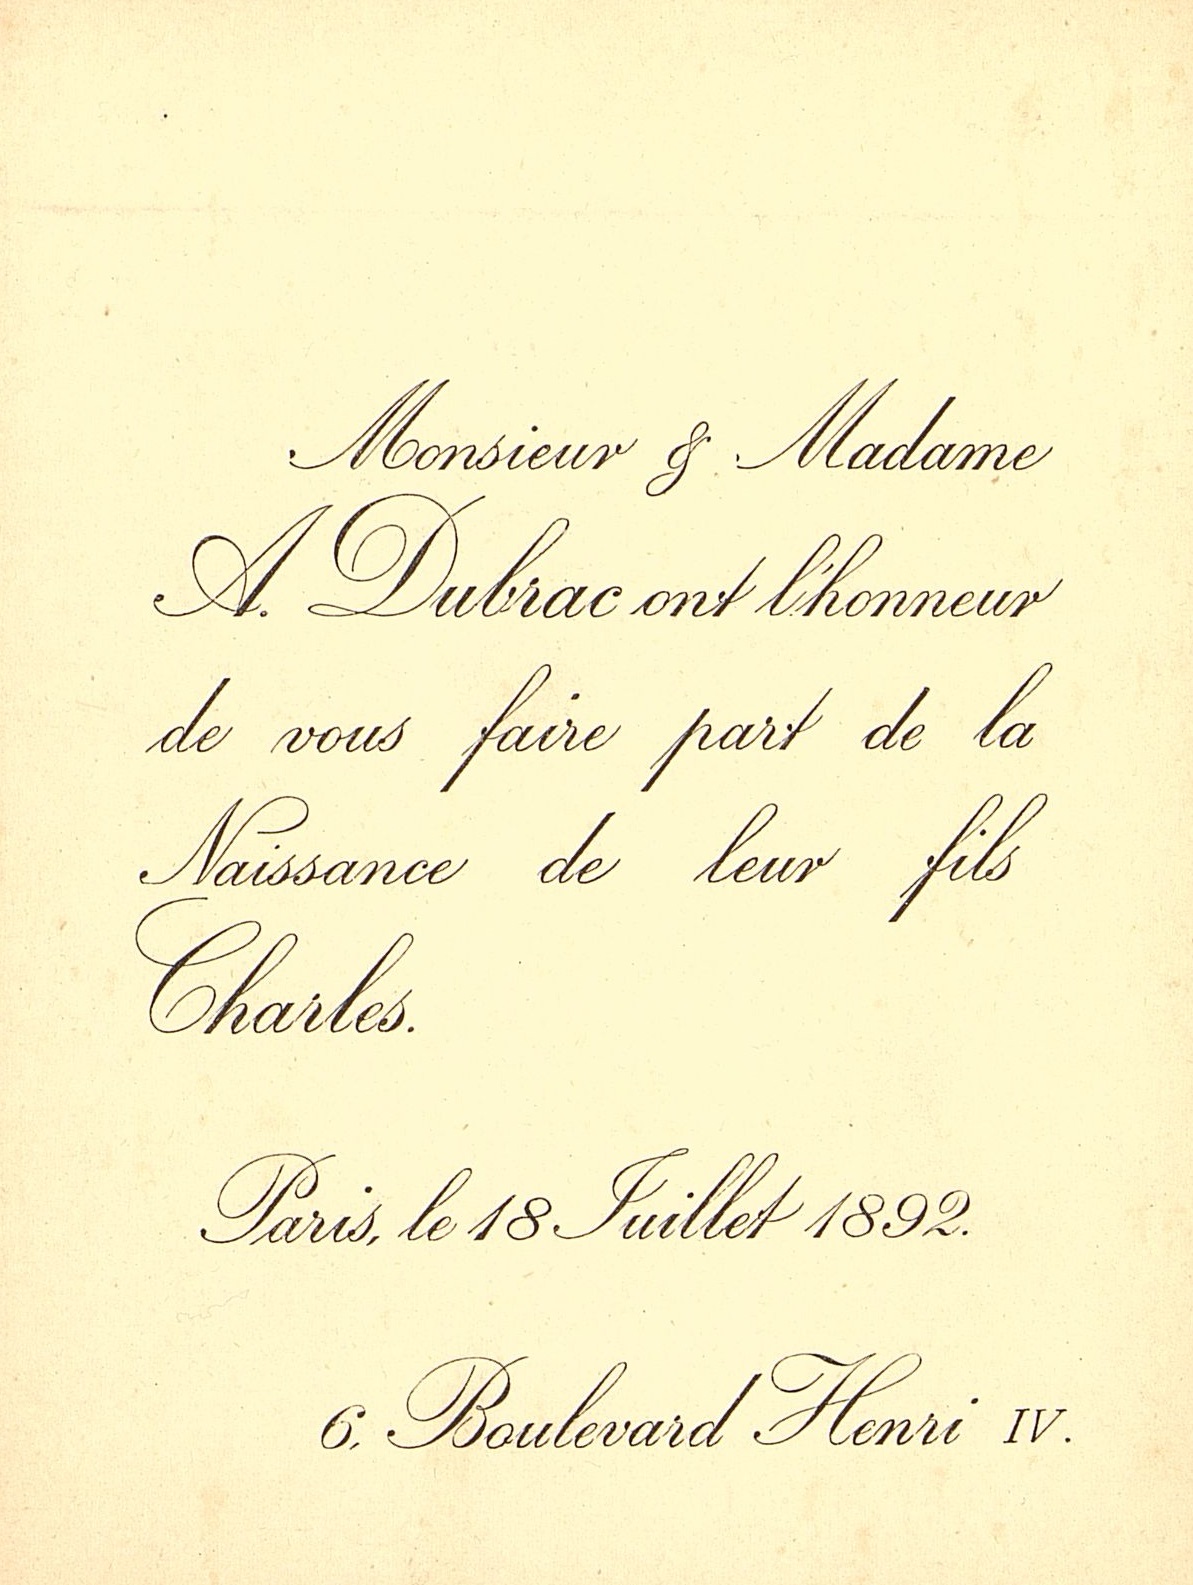 Monsieur & Madame
A. Dubrac ont l'honneur
de vous faire part de la
Naissance de leur fils
Charles.
Paris, le 18 Juillet 1892.
6, Boulevard Henri IV.